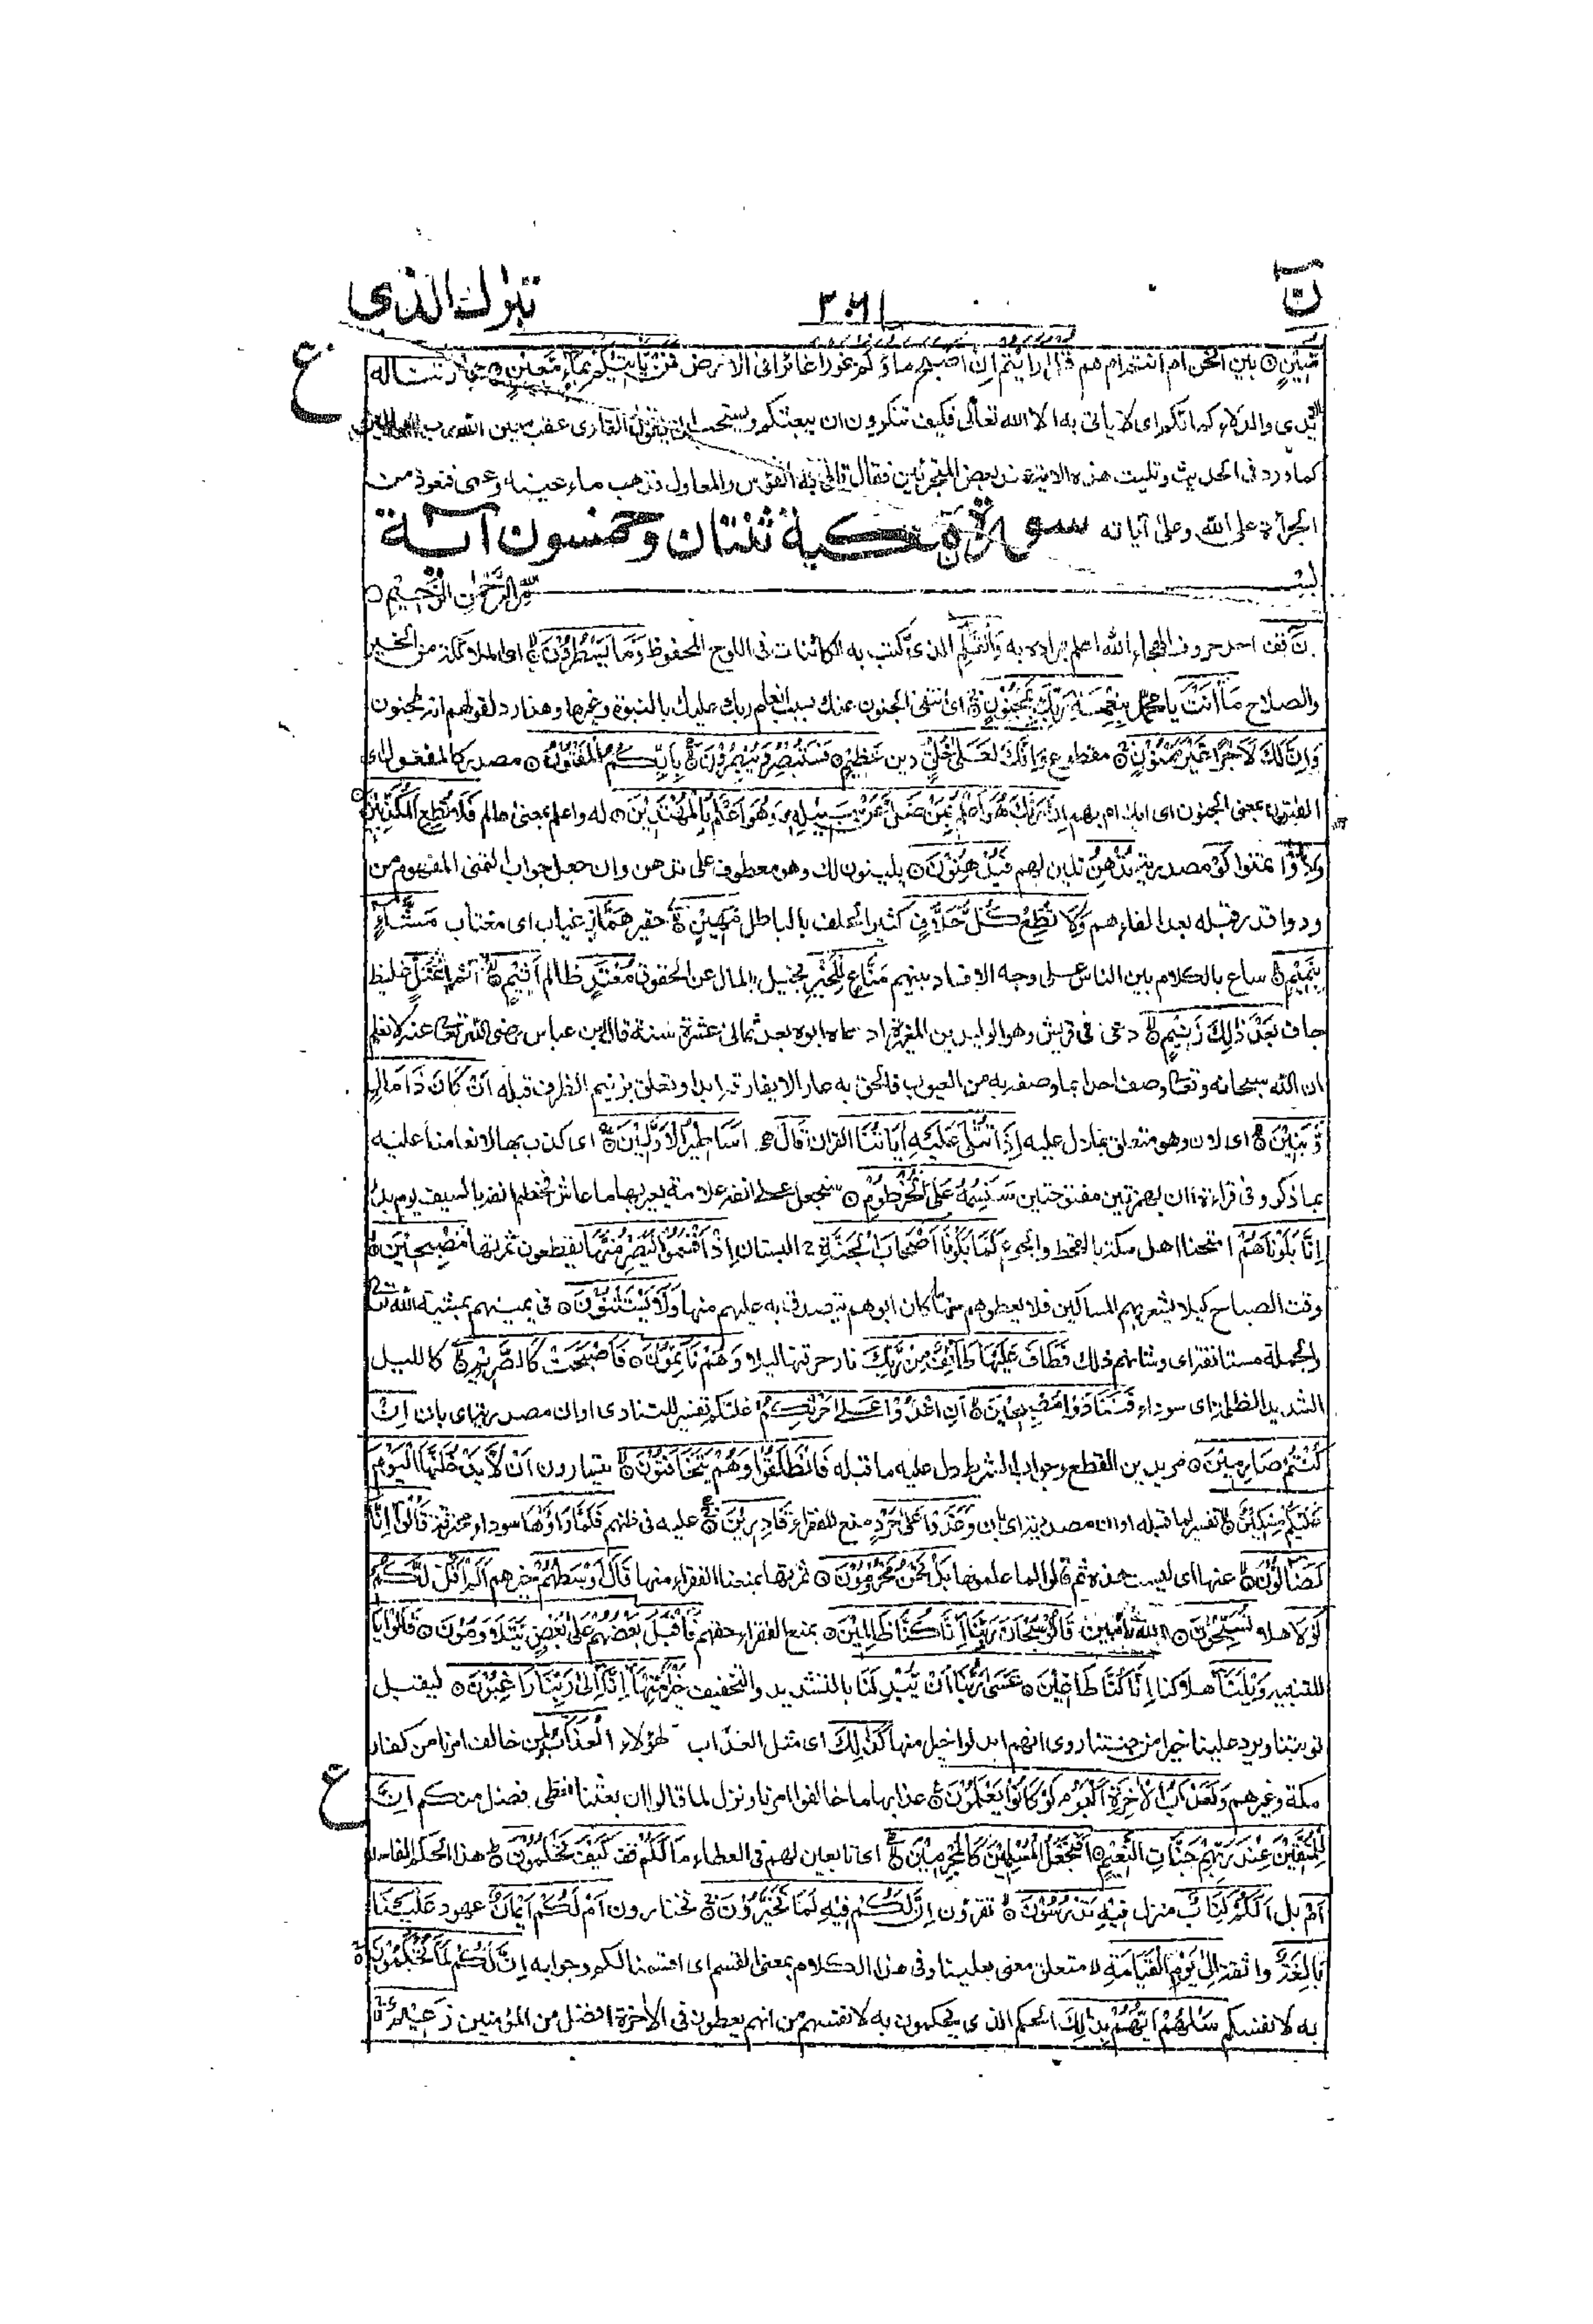 نٓ
تبٰرك الذی
مُّبِيْنٍ بين الخن ام انتم ام هم قُلْ اَرَاَيْتُمْ اِنْ اَصْبَحَ مَاؤُكُمْ غَوْرًا غائرا فی الارض فَمَنْ يَّاْتِيْكُمْ بِمَاءٍ مَّعِيْنٍ جار تناله
الايدی والدلاء كمائكم ای لا ياتی به الا الله تعالٰی فكيف تنكرون ان يبعثكم ويستحب ان يقول القاری عقب معين الله رب العالمين
كما ورد فی الحديث وتليت هذه الاية عند بعض المتجبرئين فقال تاتی به الفؤس والمعاول فذهب ماء عينه وعمی نعوذ من
الجرأة علی الله وعلی آياته سورة نٓ مكية ثنتان وخمسون آية
بِسْمِ اللهِ الرَّحْمٰنِ الرَّحِيْمِ
نٓ قف احد حروف الهجاء الله اعلم بمراده به وَالْقَلَمِ الذی كتب به الكائنات فی اللوح المحفوظ وَمَا يَسْطُرُوْنَ ای الملائكة من الخير
والصلاح مَا اَنْتَ يا محمد بِنِعْمَةِ رَبِّكَ بِمَجْنُوْنٍ ای انتفی الجنون عنك بسبب انعام ربك عليك بالنبوة وغيرها وهذا رد لقولهم انه لمجنون
وَاِنَّ لَكَ لَاَجْرًا غَيْرَ مَمْنُوْنٍ مقطوع وَاِنَّكَ لَعَلٰی خُلُقٍ دين عَظِيْمٍ فَسَتُبْصِرُ وَيُبْصِرُوْنَ بِاَيِّكُمُ الْمَفْتُوْنُ مصدر كالمعقول ای
الفتون بمعنی الجنون ای ابك ام بهم اِنَّ رَبَّكَ هُوَ اَعْلَمُ بِمَنْ ضَلَّ عَنْ سَبِيْلِهٖ وَهُوَ اَعْلَمُ بِالْمُهْتَدِيْنَ له واعلم بمعنی عالم فَلَا تُطِعِ الْمُكَذِّبِيْنَ
وَدُّوْا تمنوا لَوْ مصدرية تُدْهِنُ تلين لهم فَيُدْهِنُوْنَ يلينون لك وهو معطوف علی تدهن وان جعل جواب التمنی المفهوم من
ودوا قدر قبله بعد الفاء هم وَلَا تُطِعْ كُلَّ حَلَّافٍ كثير الحلف بالباطل مَهِيْنٍ حقير هَمَّازٍ غياب ای مغتاب مَشَّاءٍ
بِنَمِيْمٍ ساع بالكلام بين الناس علی وجه الافساد بينهم مَنَّاعٍ لِلْخَيْرِ بخيل بالمال عن الحقوق مُعْتَدٍ ظالم اَثِيْمٍ آثم عُتُلٍّ غليظ
جاف بَعْدَ ذٰلِكَ زَنِيْمٍ دعی فی قريش وهو الوليد بن المغيرة ادعاه ابوه بعد ثمانی عشرة سنة قال ابن عباس رضی الله تعالی عنه لا نعلم
ان الله سبحانه وتعالی وصف احدا بما وصفه به من العيوب فالحق به عار الا يفارقه ابدا وتعلق بزنيم الظرف قبله اَنْ كَانَ ذَا مَالٍ
وَّبَنِيْنَ ای لان وهو متعلق بما دل عليه اِذَا تُتْلٰی عَلَيْهِ اٰيَاتُنَا القران قَالَ هی اَسَاطِيْرُ الْاَوَّلِيْنَ ای كذب بها لانعامنا عليه
بما ذكر وفی قراءة أأن بهمزتين مفتوحتين سَنَسِمُهٗ عَلَی الْخُرْطُوْمِ سنجعل علی انفه علامة يعير بها ما عاش فخطم انفه بالسيف يوم بدر
اِنَّا بَلَوْنَاهُمْ امتحنا اهل مكة بالقحط والجوع كَمَا بَلَوْنَا اَصْحَابَ الْجَنَّةِ البستان اِذْ اَقْسَمُوْا لَيَصْرِمُنَّهَا يقطعون ثمرتها مُصْبِحِيْنَ
وقت الصباح كيلا يشعر بهم المساكين فلا يعطوهم منها ما كان ابوهم يتصدق به عليهم منها وَلَا يَسْتَثْنُوْنَ فی يمينهم بمشية الله تعالی
والجملة مستانفة ای وشانهم ذلك فَطَافَ عَلَيْهَا طَائِفٌ مِّنْ رَّبِّكَ نار احرقتها ليلا وَهُمْ نَائِمُوْنَ فَاَصْبَحَتْ كَالصَّرِيْمِ كالليل
الشديد الظلمة ای سوداء فَتَنَادَوْا مُصْبِحِيْنَ اَنِ اغْدُوْا عَلٰی حَرْثِكُمْ غلتكم تفسير للتنادی او ان مصدرية ای بان اِنْ
كُنْتُمْ صَارِمِيْنَ مريدين القطع وجواب الشرط دل عليه ما قبله فَانْطَلَقُوْا وَهُمْ يَتَخَافَتُوْنَ يتسارون اَنْ لَّا يَدْخُلَنَّهَا الْيَوْمَ
عَلَيْكُمْ مِّسْكِيْنٌ تفسير لما قبله او ان مصدرية ای بان وَغَدَوْا عَلٰی حَرْدٍ منع للفقراء قَادِرِيْنَ عليه فی ظنهم فَلَمَّا رَاَوْهَا سوداء محترقة قَالُوْا اِنَّا
لَضَالُّوْنَ عنها ای ليست هذه ثم قالوا لما علموها بَلْ نَحْنُ مَحْرُوْمُوْنَ ثمرتها بمنعنا الفقراء منها قَالَ اَوْسَطُهُمْ خيرهم اَلَمْ اَقُلْ لَّكُمْ
لَوْلَا هلا تُسَبِّحُوْنَ الله تائبين قَالُوْا سُبْحَانَ رَبِّنَا اِنَّا كُنَّا ظَالِمِيْنَ بمنع الفقراء حقهم فَاَقْبَلَ بَعْضُهُمْ عَلٰی بَعْضٍ يَّتَلَاوَمُوْنَ قَالُوْا يَا
للتنبيه وَيْلَنَا هلاكنا اِنَّا كُنَّا طَاغِيْنَ عَسٰی رَبُّنَا اَنْ يُّبْدِلَنَا بالتشديد والتخفيف خَيْرًا مِّنْهَا اِنَّا اِلٰی رَبِّنَا رَاغِبُوْنَ ليقبل
توبتنا ويرد علينا خيرا من جنتنا روی انهم ابدلوا خيرا منها كَذٰلِكَ ای مثل العذاب لهؤلاء الْعَذَابُ لمن خالف امرنا من كفار
مكة وغيرهم وَلَعَذَابُ الْاٰخِرَةِ اَكْبَرُ لَوْ كَانُوْا يَعْلَمُوْنَ عذابها ما خالفوا امرنا ونزل لما قالوا ان بعثنا نعطی افضل منكم اِنَّ
لِلْمُتَّقِيْنَ عِنْدَ رَبِّهِمْ جَنَّاتِ النَّعِيْمِ اَفَنَجْعَلُ الْمُسْلِمِيْنَ كَالْمُجْرِمِيْنَ ای تابعين لهم فی العطاء مَا لَكُمْ قف كَيْفَ تَحْكُمُوْنَ هذا الحكم الفاسد
اَمْ بل اَ لَكُمْ كِتَابٌ منزل فِيْهِ تَدْرُسُوْنَ تقرؤن اِنَّ لَكُمْ فِيْهِ لَمَا تَخَيَّرُوْنَ تختارون اَمْ لَكُمْ اَيْمَانٌ عهود عَلَيْنَا
بَالِغَةٌ واثقة اِلٰی يَوْمِ الْقِيَامَةِ لا متعلق معنی بعلينا وفی هذا الكلام بمعنی القسم ای اقسمنا لكم وجوابه اِنَّ لَكُمْ لَمَا تَحْكُمُوْنَ
به لانفسكم سَلْهُمْ اَيُّهُمْ بِذٰلِكَ الحكم الذی يحكمون به لانفسهم من انهم يعطون فی الاخرة افضل من المؤمنين زَعِيْمٌ